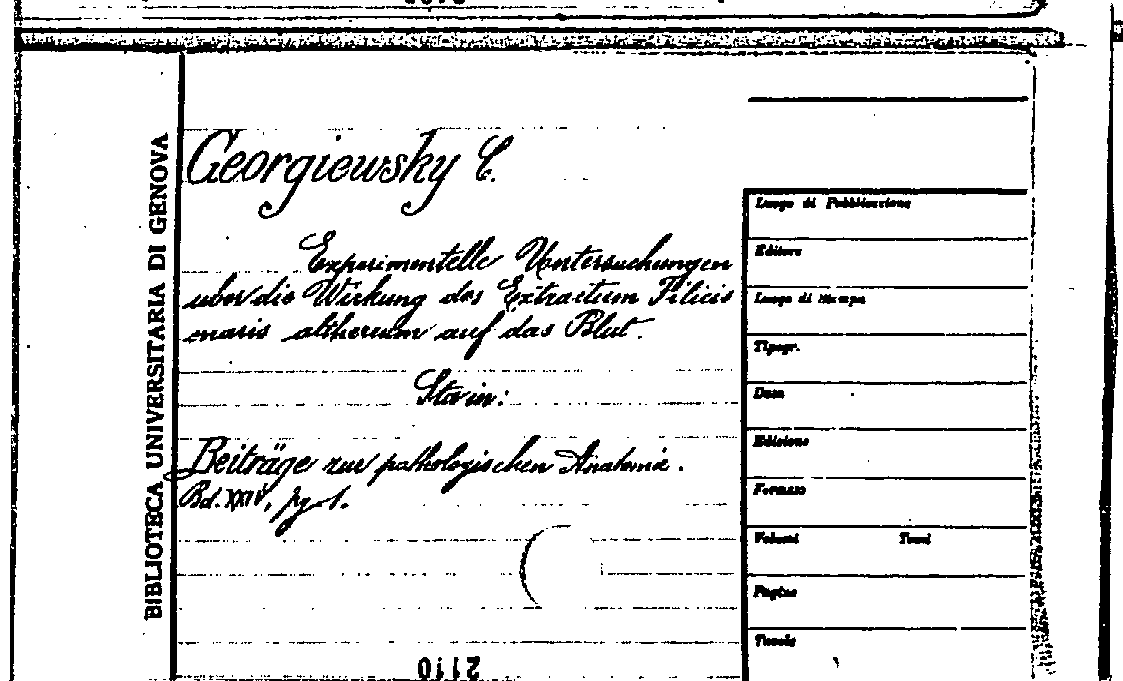 BIBLIOTECA UNIVERSITARIA DI GENOVA
Georgiewsky C.
Experimentelle Untersuchungen
über die Wirkung des Extractum Filicis
maris altherum auf das Blut.
Sta in:
Beiträge zur pathologischen Anatomie.
Bd. XXIV, pg. 1.
Luogo di Pubblicazione
Editore
Luogo di Stampa
Tipogr.
Data
Edizione
Formato
Volumi Tomi
Pagine
Tavole
2110